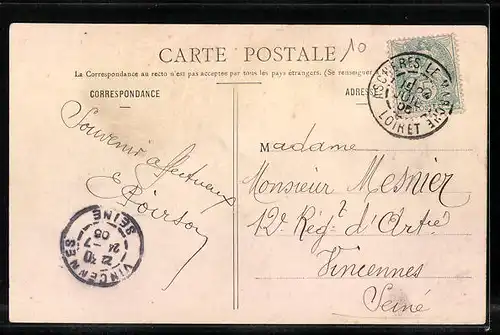 CARTE POSTALE
10
La Correspondance au recto n'est pas acceptée par tous les pays étrangers. (Se renseigner
CORRESPONDANCE
ADRES
ASCHÈRES LE MARCHÉ
JUIL
05
LOIRET
Souvenir affectueux
Madame
Monsieur Mesnier
12e Régt d'Artie
Vincennes
Seine
VINCENNES
24 -7
05
SEINE